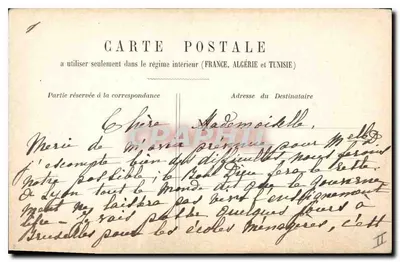 1
CARTE POSTALE
a utiliser seulement dans le régime intérieur (FRANCE, ALGÉRIE et TUNISIE)
Partie réservée à la correspondance
Adresse du Destinataire
Chère Mademoiselle,
Merci de m'avoir prévenue pour Melle D
j'escompte bien des difficultés, nous ferons
notre possible, le Bon Dieu fera le reste
tout le monde dit que le Gouverne
ment ne laissera pas venir enseignement
libre - je vais passer quelques jours à
Bruxelles pour les écoles ménagères, c'est
II